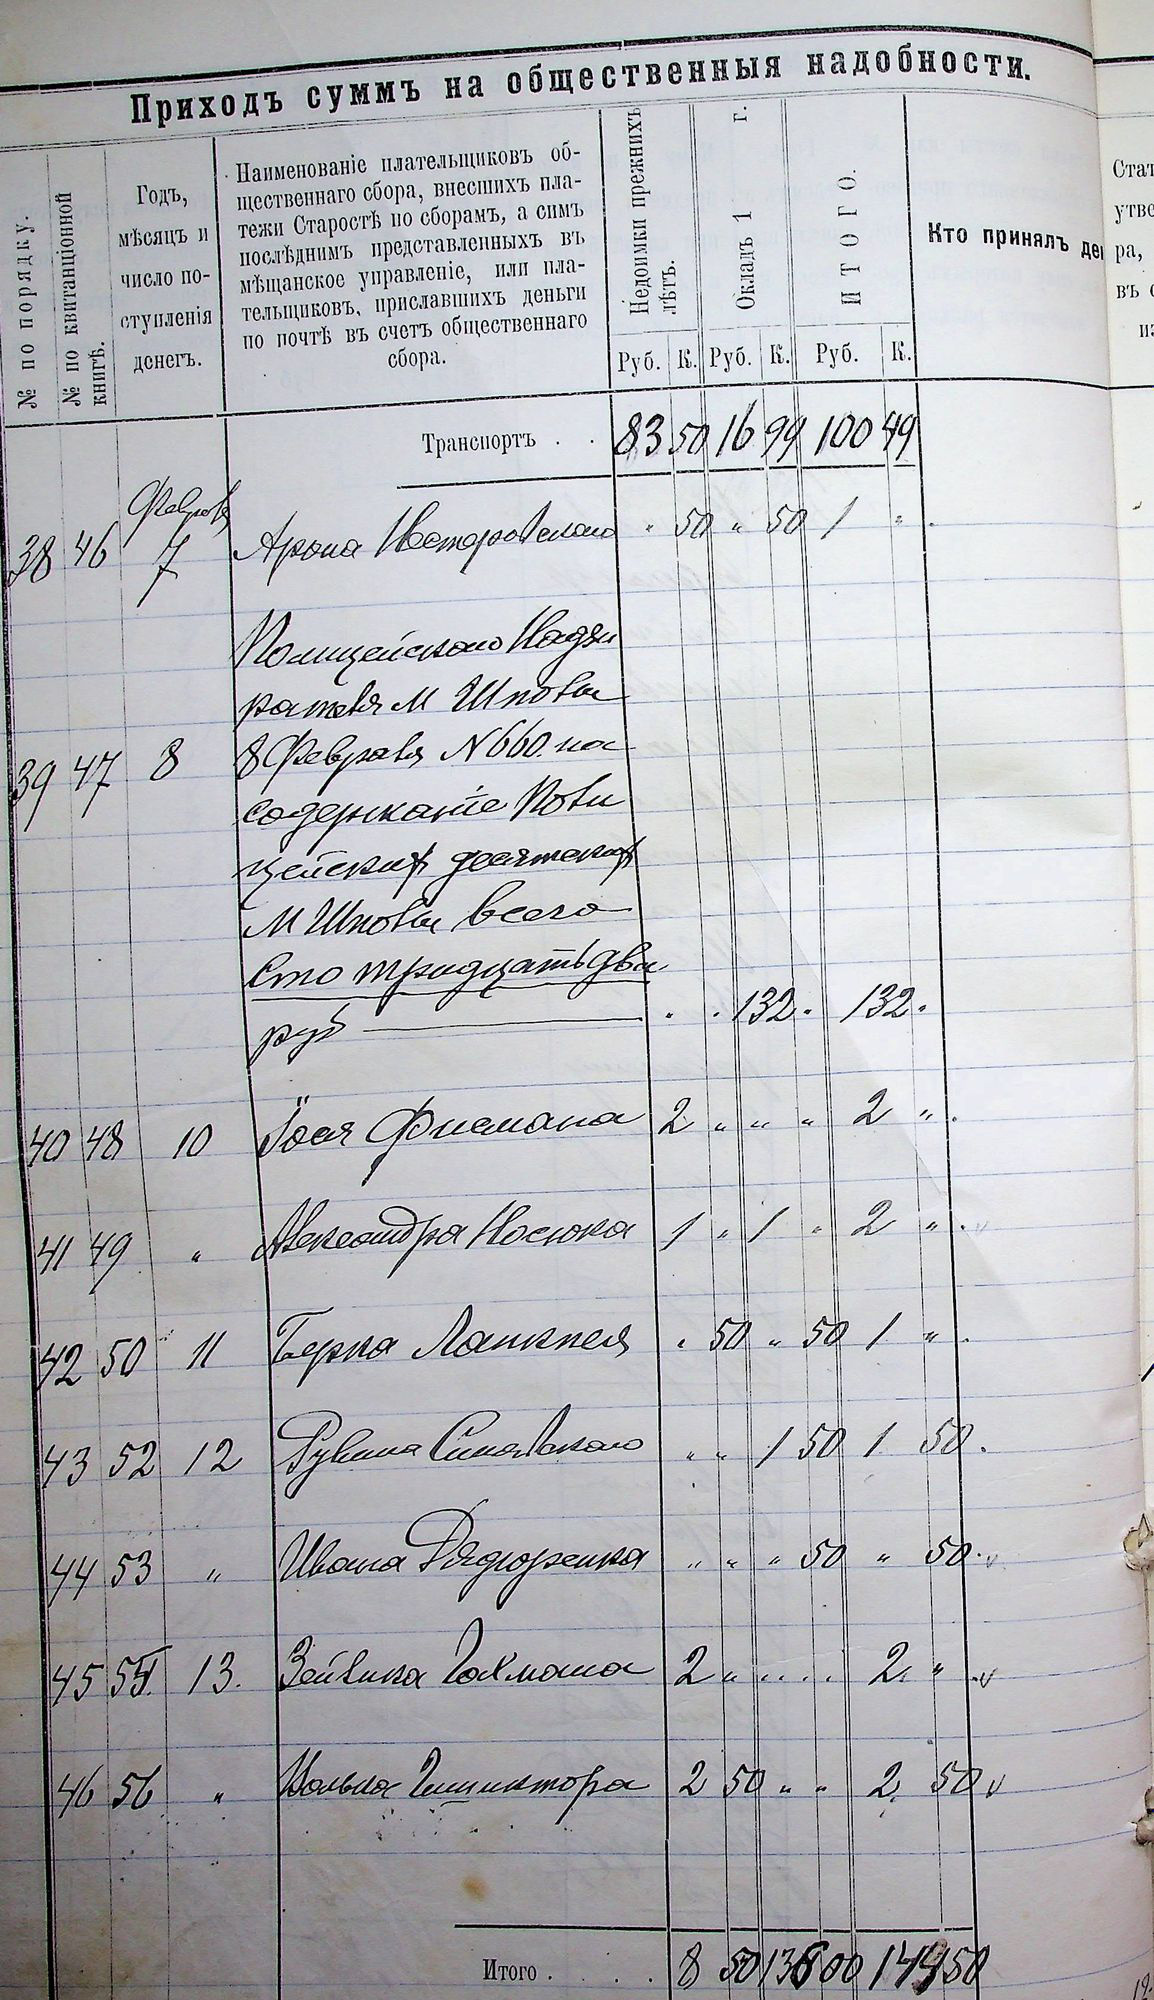 Приходъ суммъ на общественныя надобности.
№ по порядку.
№ по квитанціонной
книгѣ.
Годъ,
мѣсяцъ и
число по-
ступленія
денегъ.
Наименованіе плательщиковъ об-
щественнаго сбора, внесшихъ пла-
тежи Старостѣ по сборамъ, а симъ
послѣднимъ представленныхъ въ
мѣщанское управленіе, или пла-
тельщиковъ, приславшихъ деньги
по почтѣ въ счетъ общественнаго
сбора.
Недоимки прежнихъ
лѣтъ.
Окладъ 1 г.
ИТОГО.
Кто принялъ ден
Руб. К. Руб. К. Руб. К.
Стат
утве
ра,
въ с
из
Транспортъ . . 83 50 16 99 100 49
Февраля
38 46 7 Арона Нестеровскаго " 50 " 50 1 " .
Полицейскаго Надзи
рателя М Шполы
39 47 8 8 Февраля N 660. на
содержаніе Поли
цейскихъ десятскихъ
М Шполы всего
Сто тридцать два
руб . . 132 . 132 .
40 48 10 Іося Фисмана 2 " " " 2 " .
41 49 " Александра Носюка 1 " 1 " 2 " . v
42 50 11 Берка 50 " 50 1 " .
43 52 12 Рувина Синявскаго " " 1 50 1 50 .
44 53 " Ивана " " " 50 " 50 . v
45 54. 13. Зейлика 2 " . . . . 2. " . v
46 56 " Волька 2 50 " " 2. 50 v
Итого . . . . 8 50 136 00 144 50